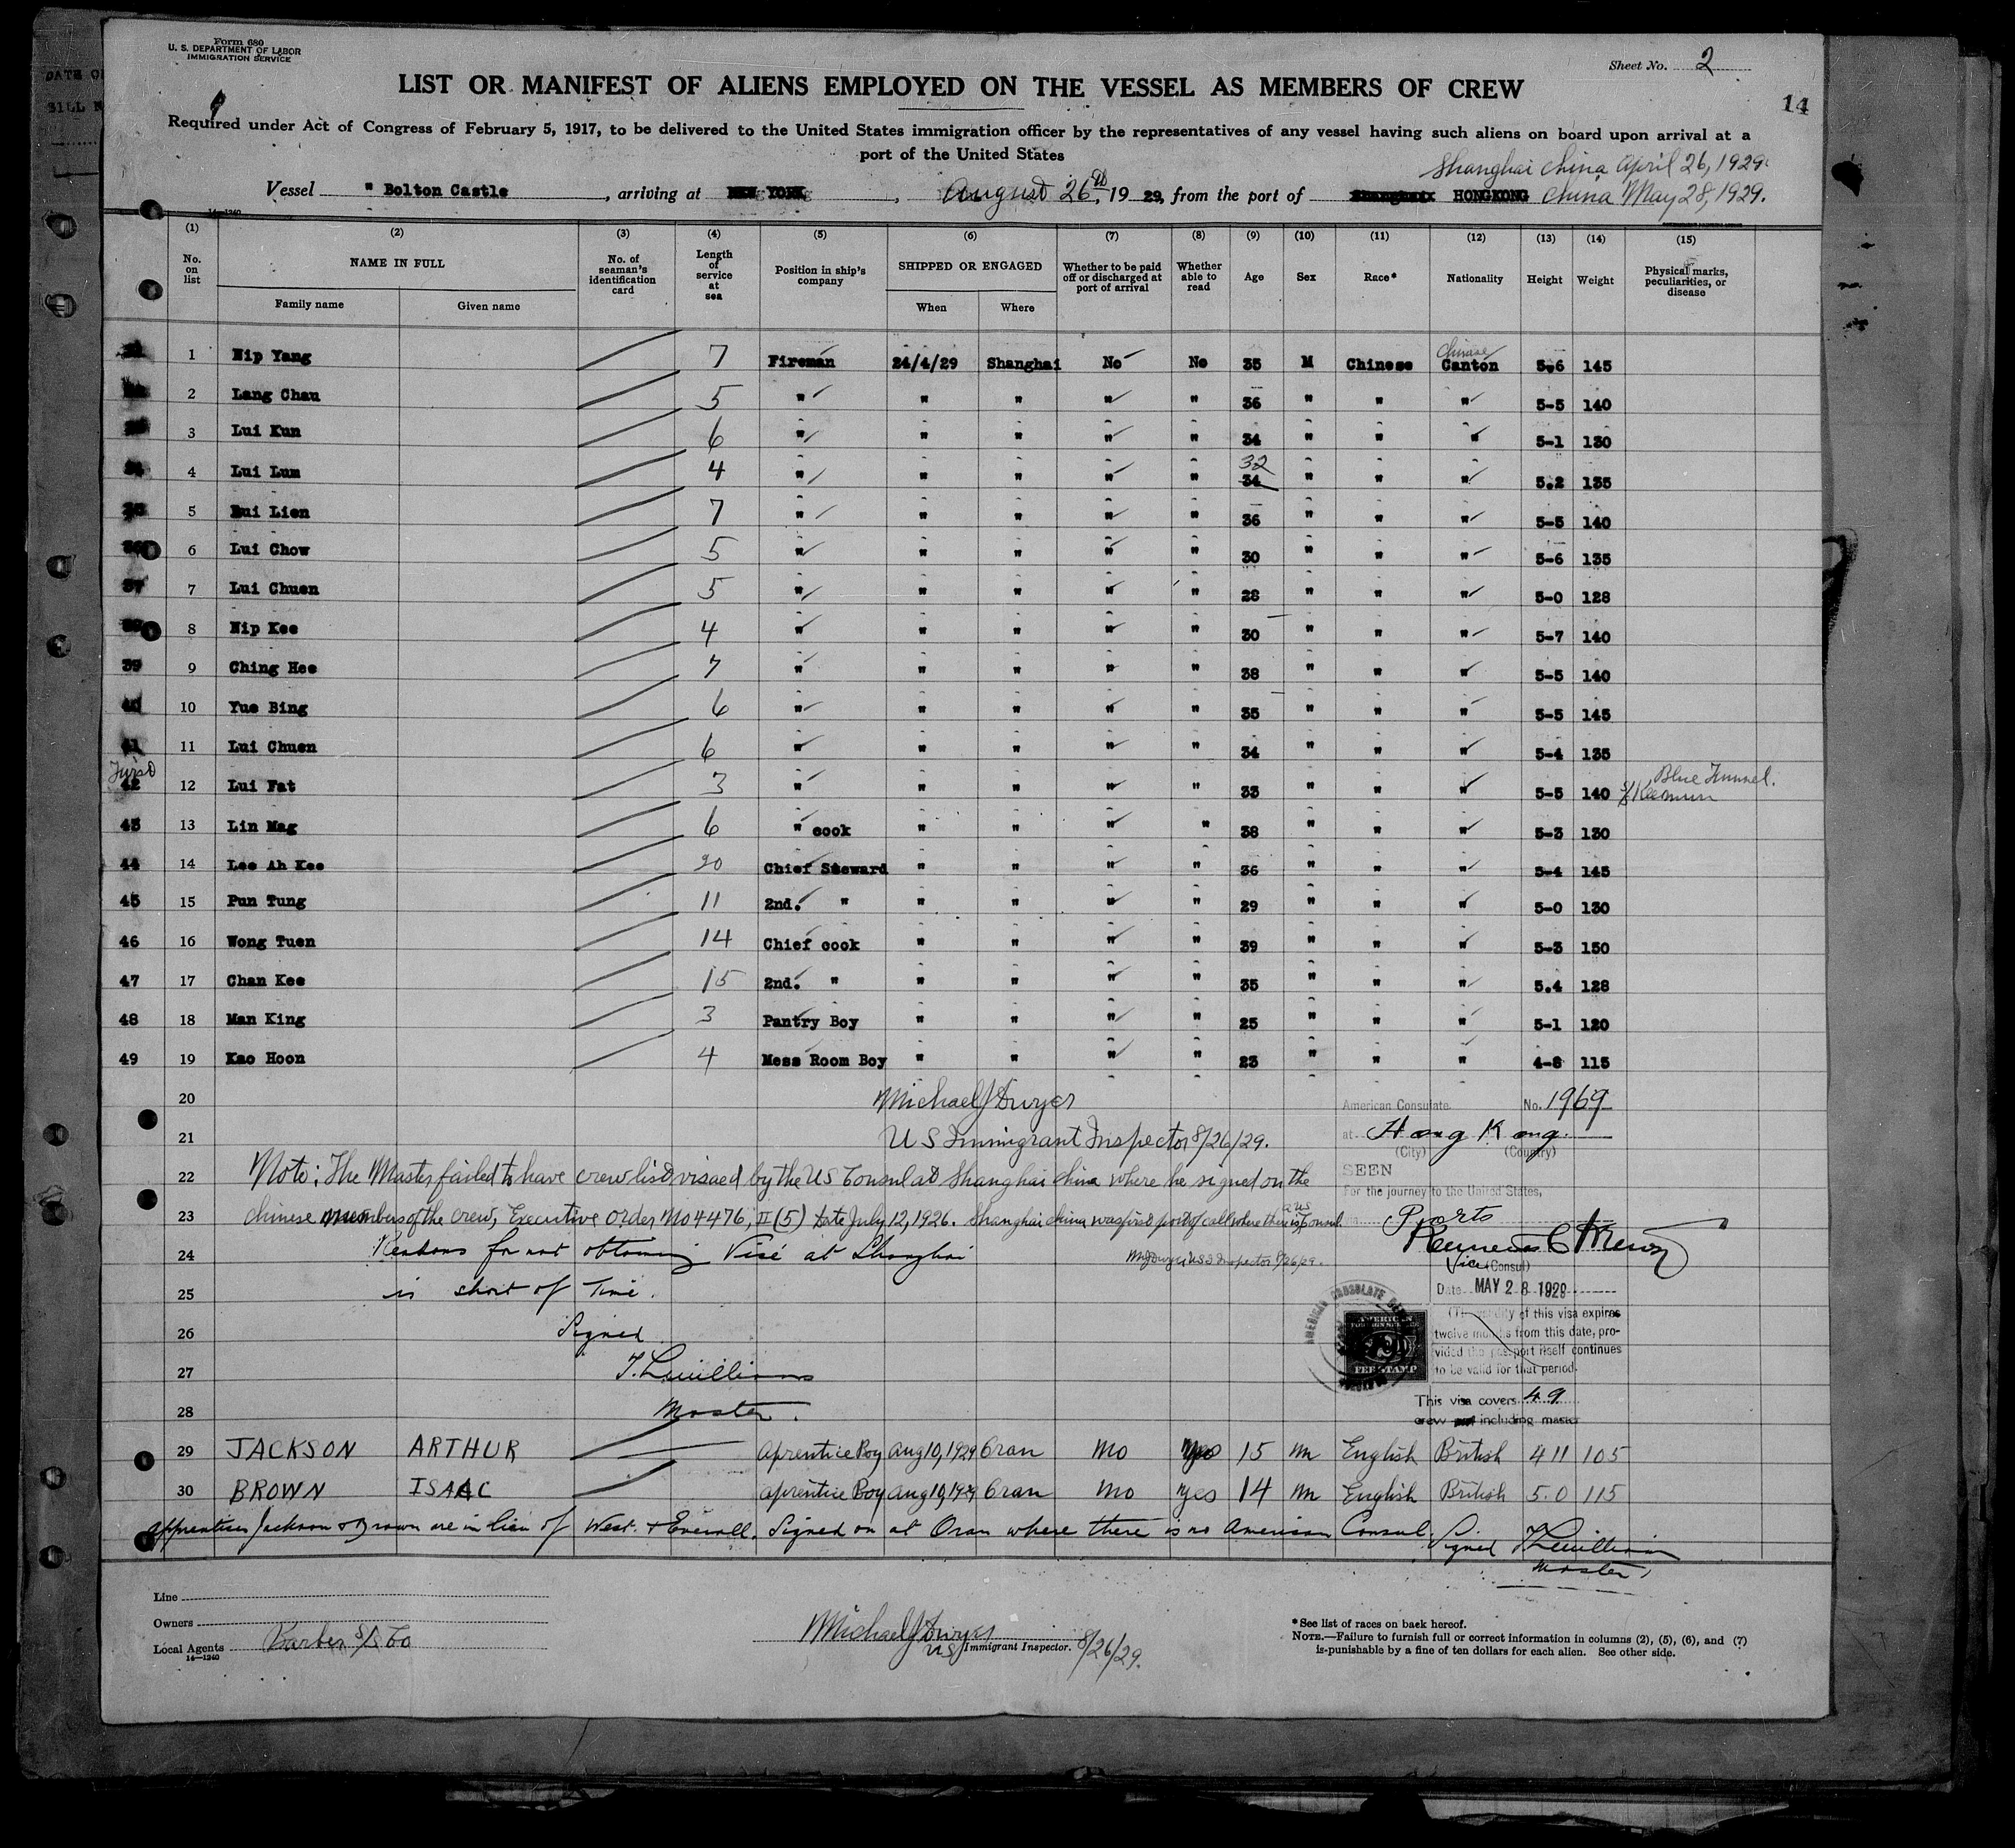 Form 680
U. S. DEPARTMENT OF LABOR
IMMIGRATION SERVICE
Sheet No. 2
LIST OR MANIFEST OF ALIENS EMPLOYED ON THE VESSEL AS MEMBERS OF CREW
14
Required under Act of Congress of February 5, 1917, to be delivered to the United States immigration officer by the representatives of any vessel having such aliens on board upon arrival at a
port of the United States
Shanghai China April 26, 1929
Vessel " Bolton Castle, arriving at NEW YORK, August 26th, 19 29, from the port of Shanghai HONGKONG China May 28, 1929.
14-1240
(1) (2) (3) (4) (5) (6) (7) (8) (9) (10) (11) (12) (13) (14) (15)
No. on list NAME IN FULL Family name Given name No. of seaman's identification card Length of service at sea Position in ship's company SHIPPED OR ENGAGED When Where Whether to be paid off or discharged at port of arrival Whether able to read Age Sex Race* Nationality Height Weight Physical marks, peculiarities, or disease
Chinese
1 Nip Yang 7 Fireman 24/4/29 Shanghai No No 35 M Chinese Canton 5-6 145
2 Lang Chau 5 " " " " " 36 " " " 5-5 140
3 Lui Kun 6 " " " " " 34 " " " 5-1 130
4 Lui Lum 4 " " " " " 32 34 " " " 5.2 135
5 Lui Lien 7 " " " " " 36 " " " 5-5 140
6 Lui Chow 5 " " " " " 30 " " " 5-6 135
37 7 Lui Chuen 5 " " " " " 28 " " " 5-0 128
8 Nip Kee 4 " " " " " 30 " " " 5-7 140
39 9 Ching Hee 7 " " " " " 38 " " " 5-5 140
40 10 Yue Bing 6 " " " " " 35 " " " 5-5 145
41 11 Lui Chuen 6 " " " " " 34 " " " 5-4 135
42 12 Lui Fat 3 " " " " " 33 " " " 5-5 140 Blue Funnel. S/S Keemun
43 13 Lin Mag 6 " cook " " " " 38 " " " 5-3 130
44 14 Lee Ah Kee 20 Chief Steward " " " " 36 " " " 5-4 145
45 15 Pun Tung 11 2nd. " " " " " 29 " " " 5-0 130
46 16 Wong Tuen 14 Chief cook " " " " 39 " " " 5-3 150
47 17 Chan Kee 15 2nd. " " " " " 35 " " " 5.4 128
48 18 Man King 3 Pantry Boy " " " " 25 " " " 5-1 120
49 19 Kao Hoon 4 Mess Room Boy " " " " 23 " " " 4-8 115
20 Michael J Dwyer
American Consulate. No. 1969
21 U S Immigrant Inspector 8/26/29.
at Hong Kong.
(City) (Country)
SEEN
22 Note: The Master failed to have crew list visaed by the US Consul at Shanghai China where he signed on the
For the journey to the United States,
23 Chinese members of the crew, Executive Order No 4476, II (5) date July 12, 1926. Shanghai China was first port of call where there is a US Consul.
Ports
24 Reasons for not obtaining Visé at Shanghai
MJ Dwyer, US I Inspector 8/26/29.
Vice (Consul)
25 is short of Time.
Date MAY 28 1929
AMERICAN CONSULATE
(The validity of this visa expires
26 Signed
twelve months from this date, pro-
vided the passport itself continues
FEE STAMP
to be valid for that period.
27 T. L. Williams
This visa covers 49
28 Master.
crew including master
29 JACKSON ARTHUR aprentice Boy Aug 10, 1929 Oran No Yes 15 M English British 4 11 105
30 BROWN ISAAC aprentice Boy Aug 10, 1929 Oran No Yes 14 M English British 5.0 115
Apprentices Jackson & Brown are in lieu of West & Everall. Signed on at Oran where there is no American Consul.
Signed T. L. Williams
Master,
Line
Owners
Local Agents Barber S/S Co
14-1240
Michael J Dwyer
US Immigrant Inspector. 8/26/29.
*See list of races on back hereof.
NOTE.—Failure to furnish full or correct information in columns (2), (5), (6), and (7)
is punishable by a fine of ten dollars for each alien. See other side.